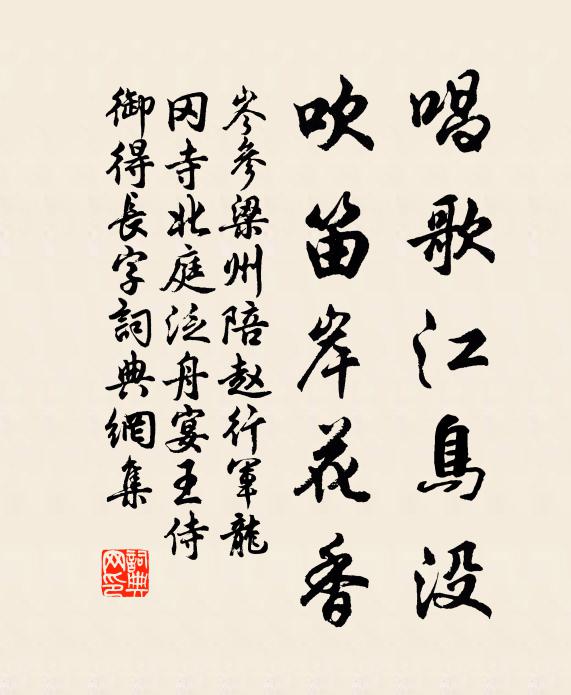 唱歌江鳥没
吹笛岸花香
岑參梁州陪赵行軍龍
冈寺北庭泛舟宴王侍
御得長字詞典網集
詞典
网印